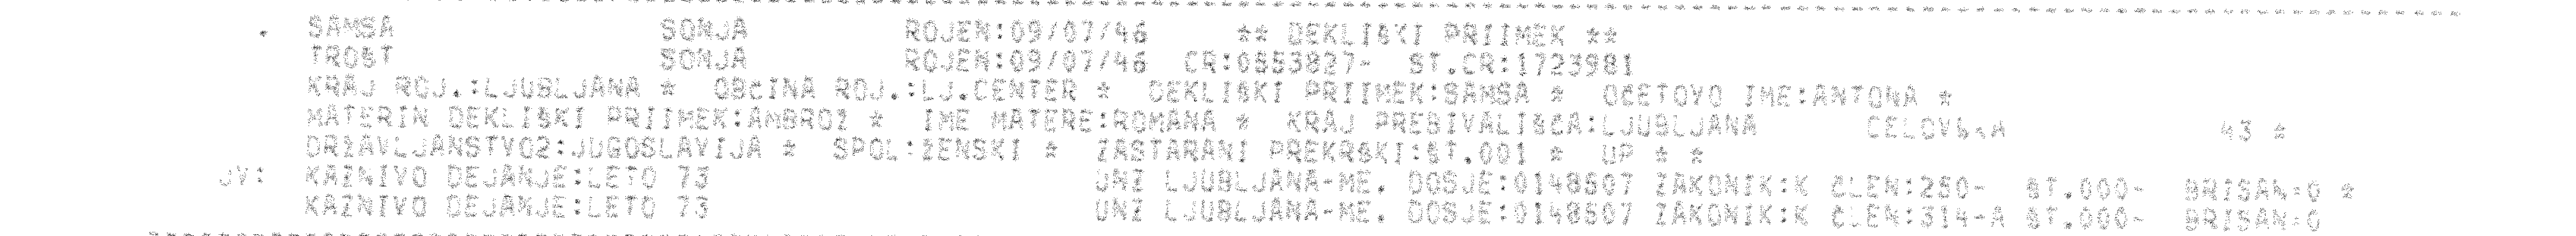 SAMSA SONJA ROJEN:09/07/46 ** DEKLIŠKI PRIIMEK **
TROŠT SONJA ROJEN:09/07/46 CR:0853827- ŠT.CR:1723981
KRAJ ROJ.:LJUBLJANA * OBČINA ROJ.:LJ.CENTER * DEKLIŠKI PRIIMEK:SAMSA * OČETOVO IME:ANTONA *
MATERIN DEKLIŠKI PRIIMEK:AMBROŽ * IME MATERE:ROMANA * KRAJ PREBIVALIŠČA:LJUBLJANA 43 *
DRŽAVLJANSTVO2:JUGOSLAVIJA * SPOL:ŽENSKI * ZASTARANI PREKRŠKI:ŠT.001 * UP * *
JV: KAZNIVO DEJANJE:LETO 73 UNZ LJUBLJANA-ME. DOSJE:0148607 ZAKONIK:K ČLEN:250- ŠT.000- BRISAN=0 *
KAZNIVO DEJANJE:LETO 73 UNZ LJUBLJANA-ME. DOSJE:0148607 ZAKONIK:K ČLEN:314-A ŠT.000- BRISAN=0